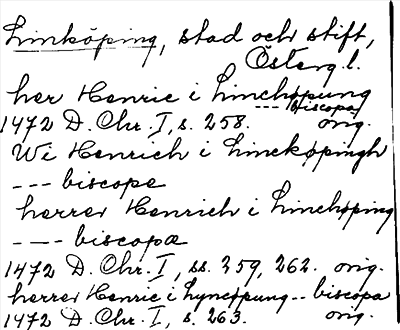 Linköping, stad och stift,
Österg. l.
her Henric i Linchøpung
--- biscopa
1472 D. Chr. I, s. 258. orig.
Wi Henrich i Linckøpingh
--- biscope
herrer Henrich i Linchøping
--- biscopæ
1472 D. Chr. I, ss. 259, 262. orig.
herrer Henric i Lyncøpung -- biscopa
1472 D. Chr. I, s. 263. orig.